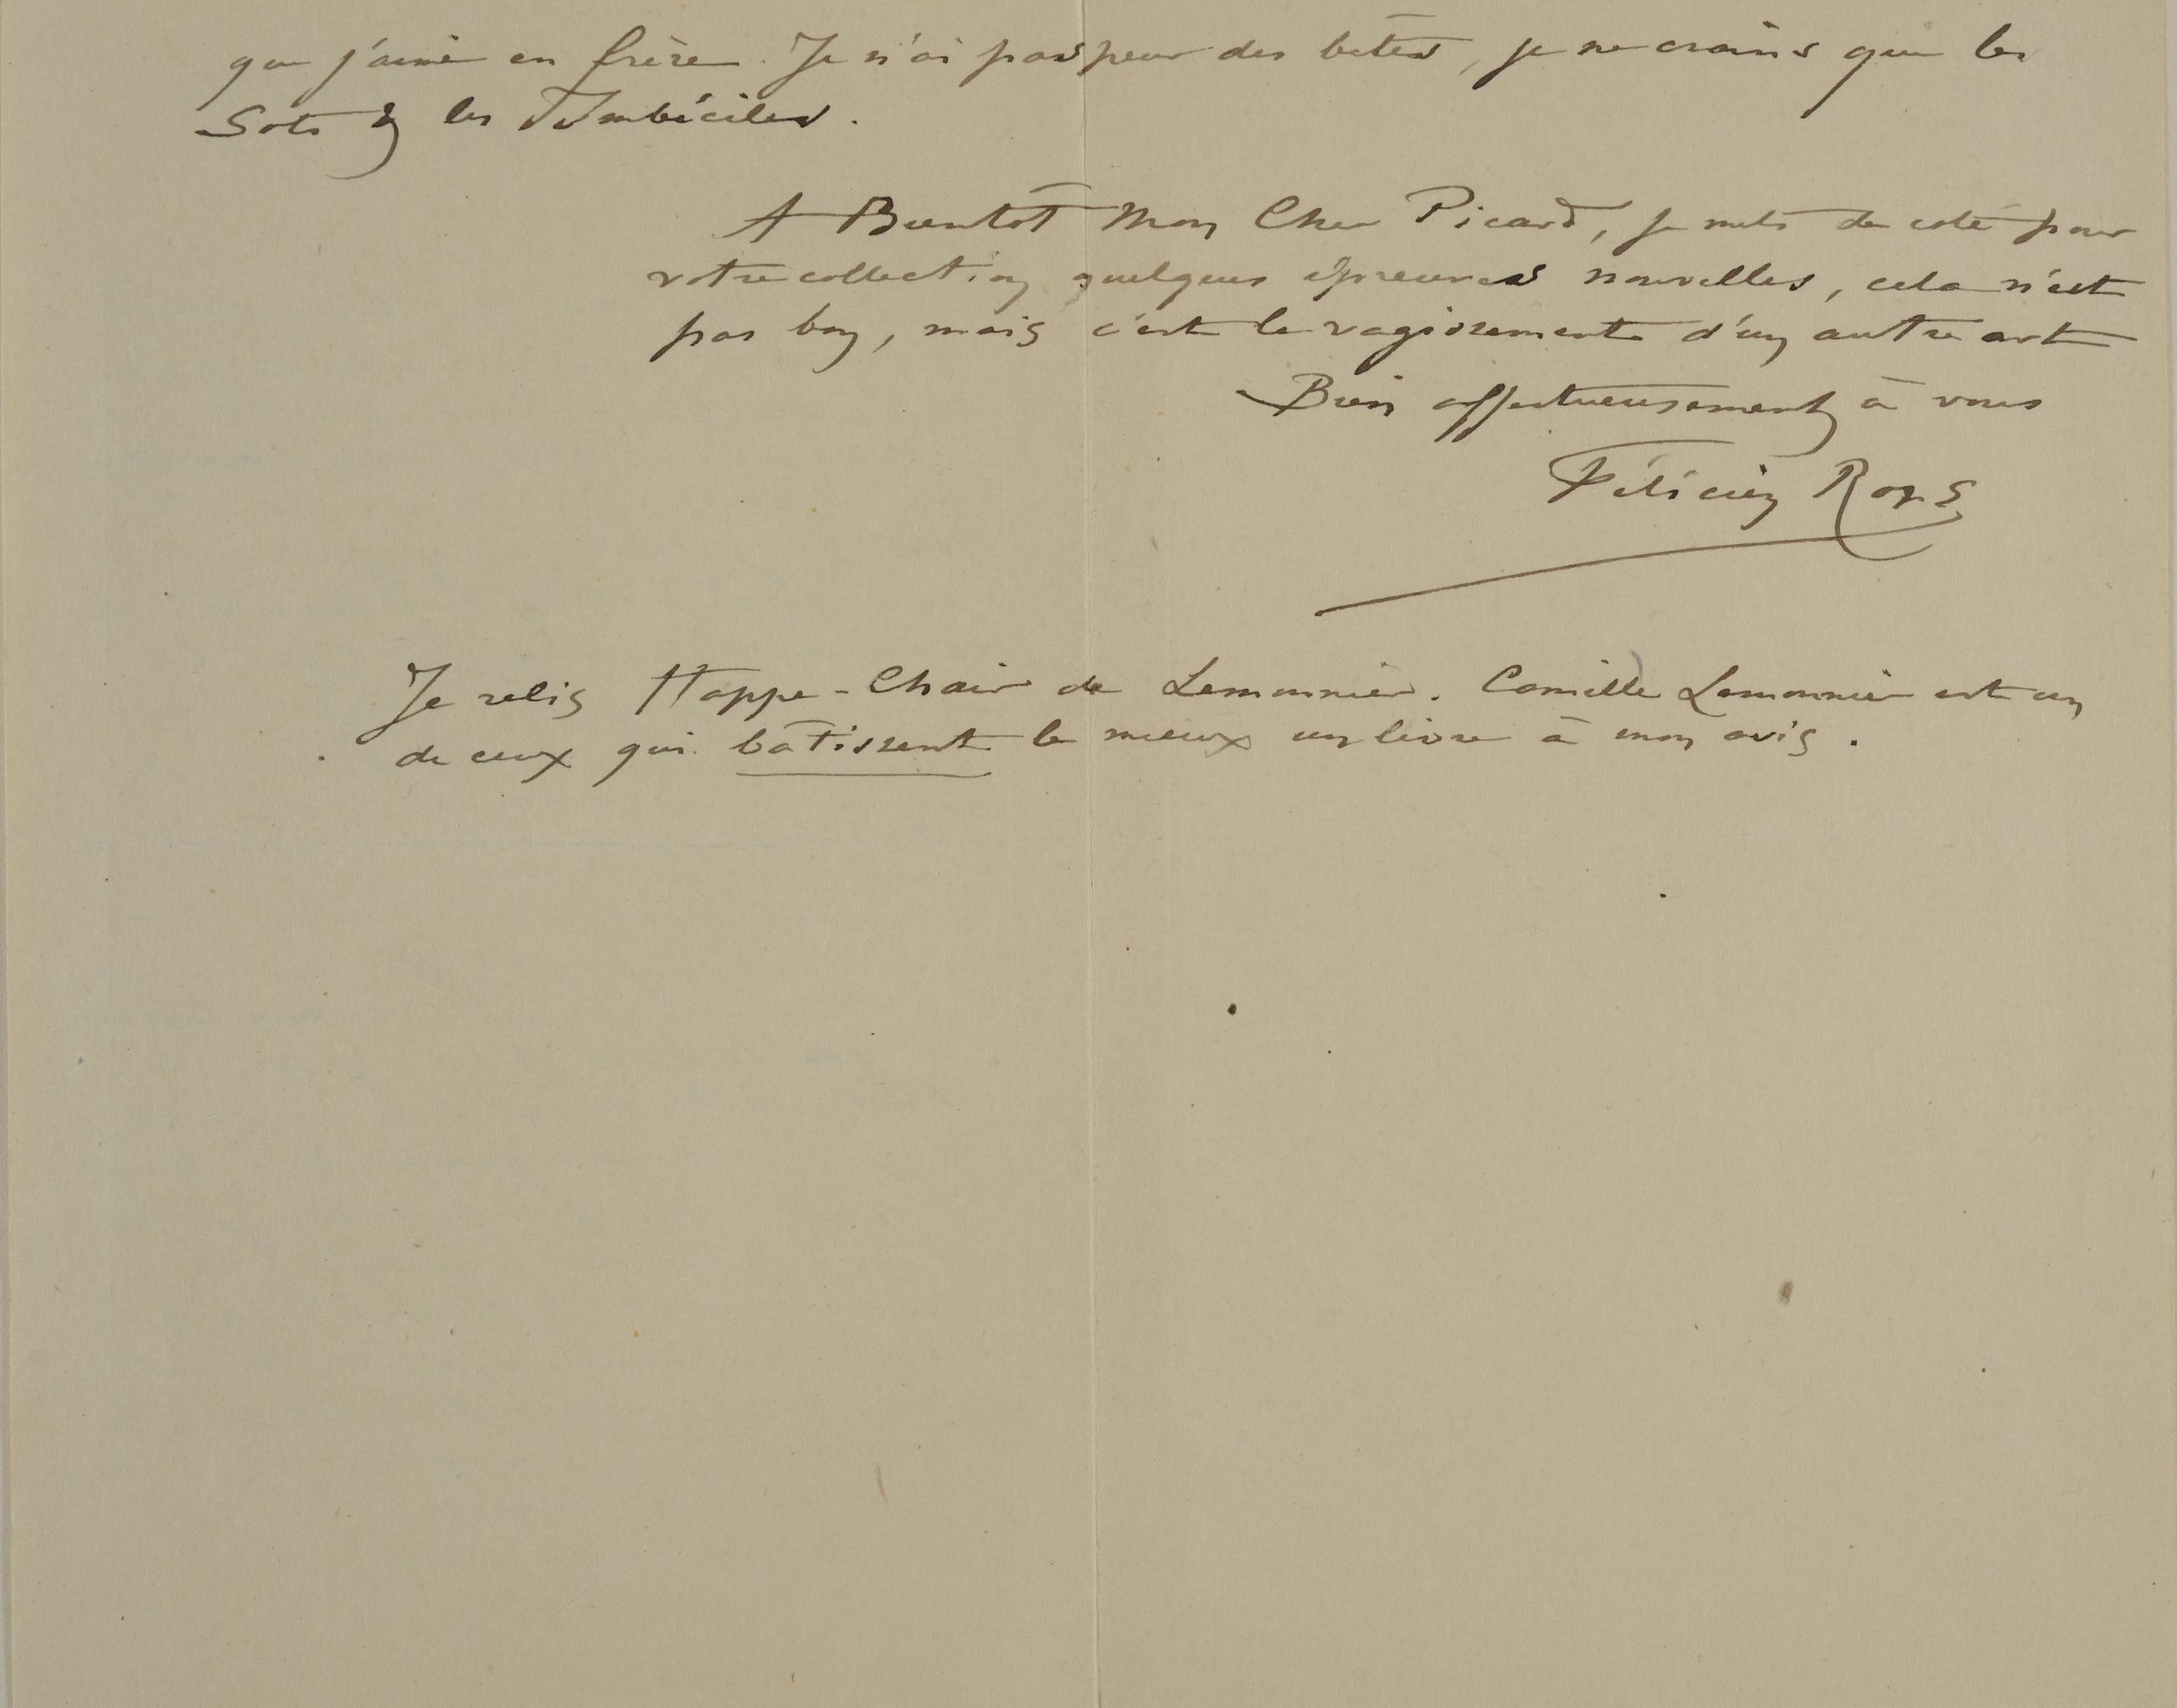 que j'aime en frère. Je n'ai pas peur des bêtes, je ne crains que les
Sots & les Imbéciles.
A Bientôt Mon Cher Picard, je mets de coté pour
votre collection quelques épreuves nouvelles, cela n'est
pas bon, mais c'est le vagissement d'un autre art
Bien affectueusement à vous
Félicien Rops
Je relis Happe-Chair de Lemonnier. Camille Lemonnier est un
de ceux qui bâtissent le mieux un livre à mon avis.